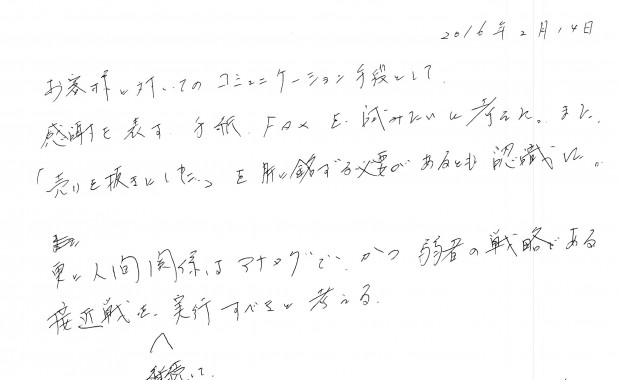 2016年2月14日
お客様と対いてのコミュニケーション手段として、
感謝を表す、手紙、FAXを試みたいと考えた。また、
「売りを抜きにした」を肝に銘ずる必要があるとも認識した。
更に人間関係はアナログで、かつ弱者の戦略である
接近戦を、実行すべきと考える。
継続して